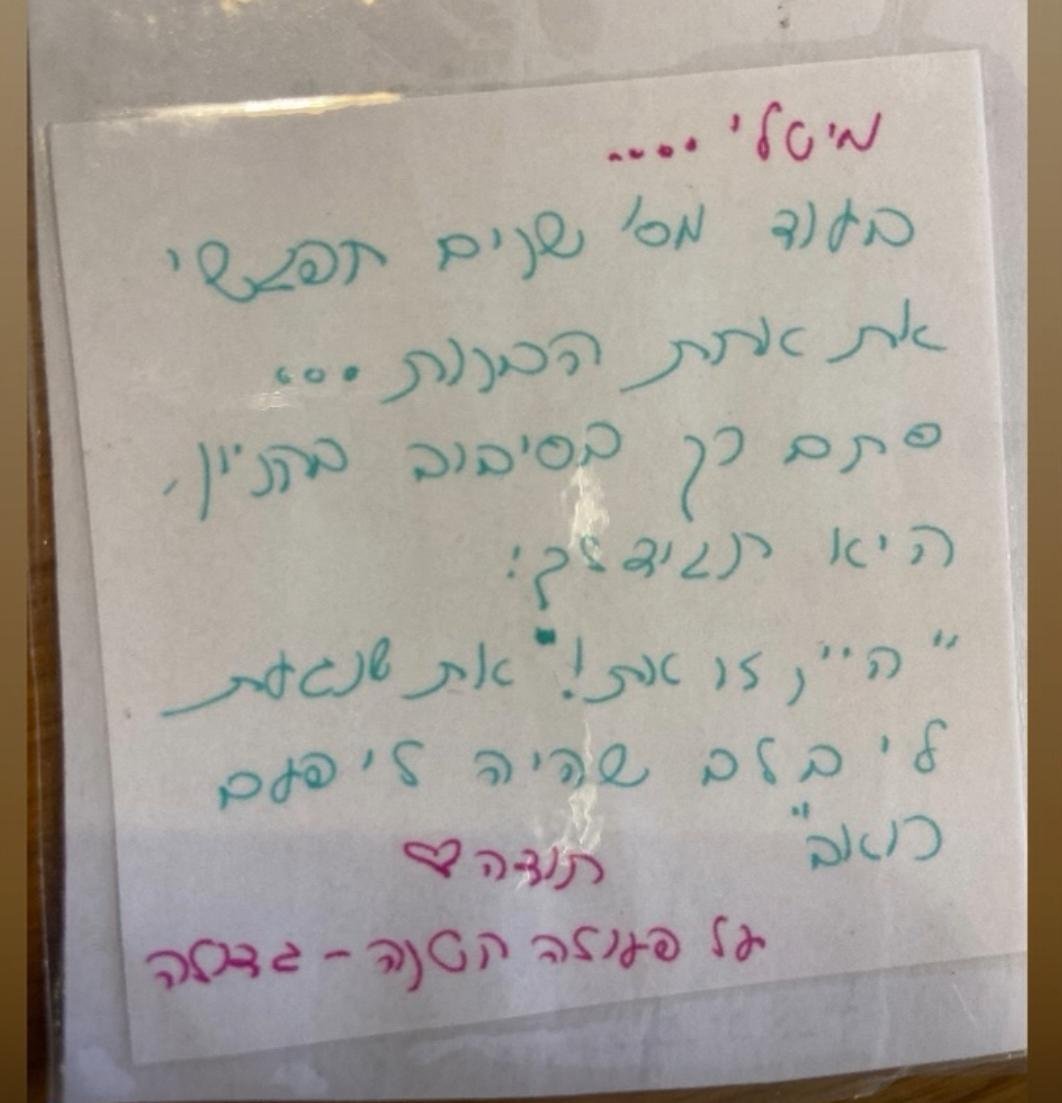 מיטלי ....
בעוד מס' שנים תפגשי
את אחת הבנות ...
סתם כך בסיבוב בקניון,
היא תגיד לך:
"היי, זו את!" את שנגעת
לי בלב שהיה לי פעם
כואב"
תודה ♡
על פעולה קטנה - גדולה